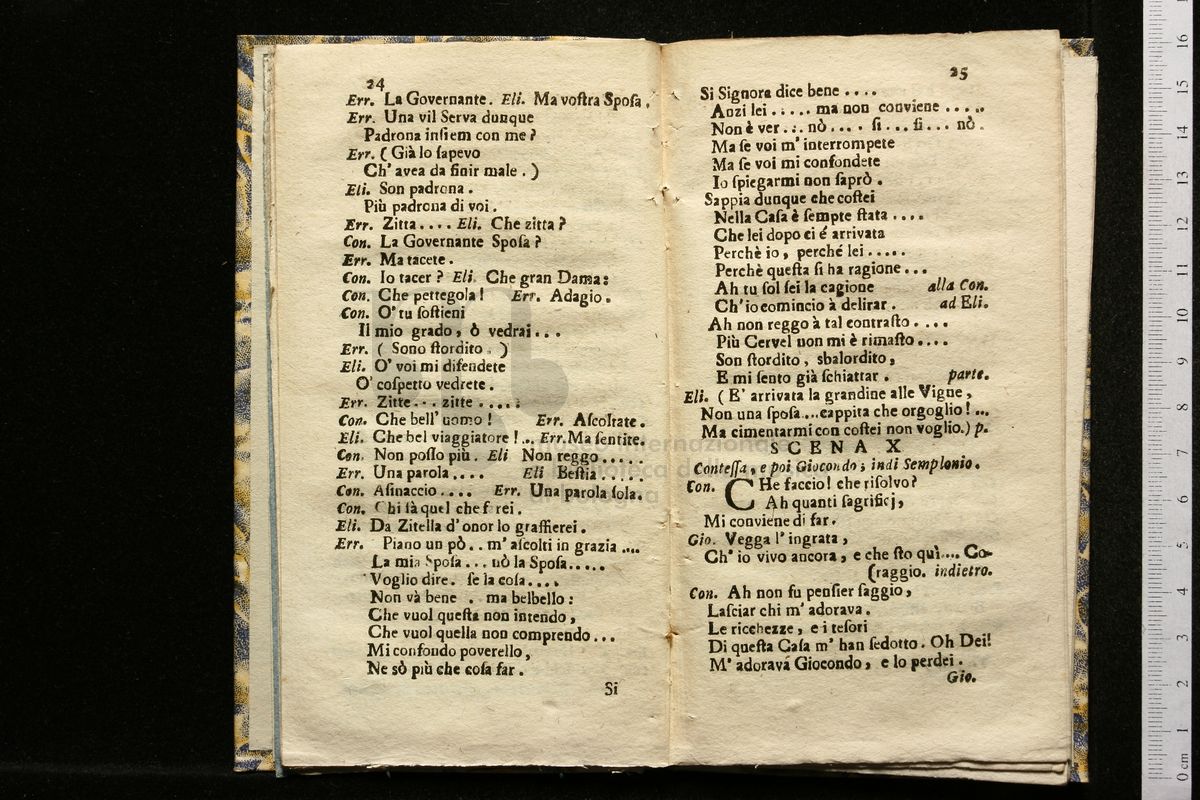 24
Err. La Governante. Eli. Ma voſtra Spoſa.
Err. Una vil Serva dunque
Padrona inſiem con me?
Err. (Già lo ſapevo
Ch' avea da finir male.)
Eli. Son padrona.
Più padrona di voi.
Err. Zitta.... Eli. Che zitta?
Con. La Governante Spoſa?
Err. Ma tacete.
Con. Io tacer? Eli. Che gran Dama:
Con. Che pettegola! Err. Adagio.
Con. O' tu ſoſtieni
Il mio grado, ò vedrai...
Err. (Sono ſtordito.)
Eli. O' voi mi difendete
O' coſpetto vedrete.
Err. Zitte... zitte.....
Con. Che bell' uomo! Err. Aſcoltate.
Eli. Che bel viaggiatore!... Err. Ma ſentite.
Con. Non poſſo più. Eli Non reggo.....
Err. Una parola.... Eli Beſtia.....
Con. Aſinaccio.... Err. Una parola ſola.
Con. Chi sà quel che farei.
Eli. Da Zitella d' onor lo graffierei.
Err. Piano un pò.. m' aſcolti in grazia....
La mia Spoſa... nò la Spoſa.....
Voglio dire. ſe la coſa....
Non và bene . ma belbello:
Che vuol queſta non intendo,
Che vuol quella non comprendo...
Mi confondo poverello,
Ne sò più che coſa far.
Si
25
Si Signora dice bene....
Anzi lei..... ma non conviene.....
Non è ver... nò.... ſi... ſi... nò.
Ma ſe voi m' interrompete
Ma ſe voi mi confondete
Io ſpiegarmi non ſaprò.
Sappia dunque che coſtei
Nella Caſa è ſempte ſtata....
Che lei dopo ci é arrivata
Perchè io, perché lei.....
Perchè queſta ſi ha ragione...
Ah tu ſol ſei la cagione alla Con.
Ch' io comincio à delirar. ad Eli.
Ah non reggo à tal contraſto....
Più Cervel non mi è rimaſto....
Son ſtordito, sbalordito,
E mi ſento già ſchiattar. parte.
Eli. (E' arrivata la grandine alle Vigne,
Non una ſpoſa...cappita che orgoglio!...
Ma cimentarmi con coſtei non voglio.) p.
SCENA X
Conteſſa, e poi Giocondo; indi Semplonio.
Con. CHe faccio! che riſolvo?
Ah quanti ſagrificj,
Mi conviene di far.
Gio. Vegga l' ingrata,
Ch' io vivo ancora, e che ſto quì.... Co-
(raggio. indietro.
Con. Ah non fu penſier ſaggio,
Laſciar chi m' adorava.
Le ricchezze, e i teſori
Di queſta Caſa m' han ſedotto. Oh Dei!
M' adoravá Giocondo, e lo perdei.
Gio.